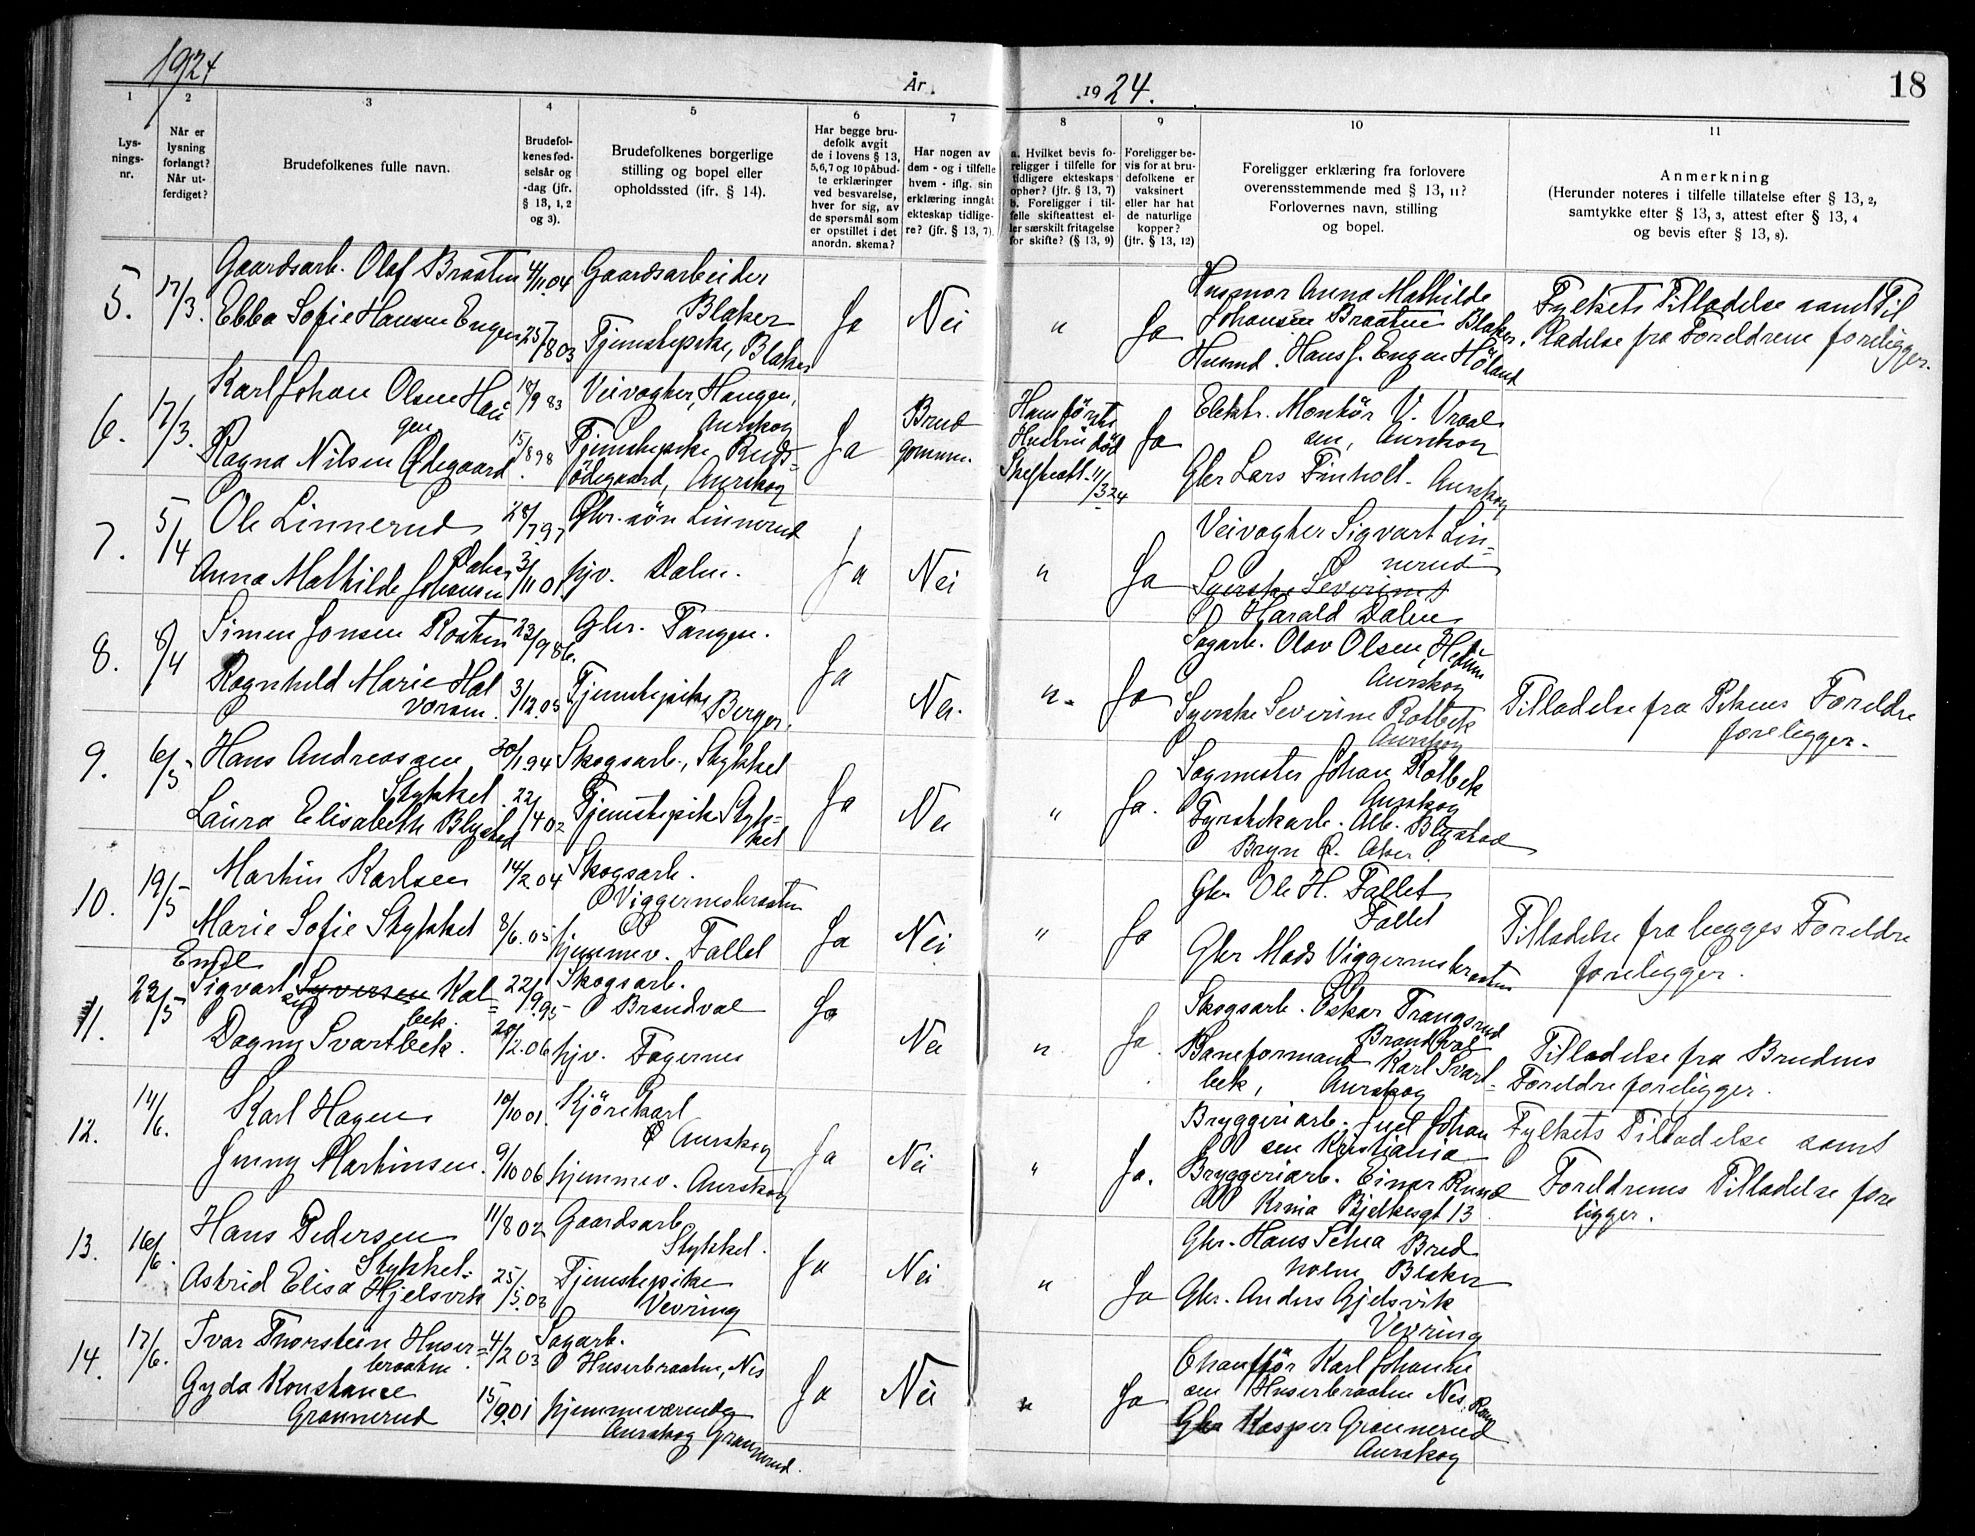 1924
År
1924.
18
1
2
3
4
5
6
7
8
9
10
11
Lys-
nings-
nr.
Når er
lysning
forlangt?
Når ut-
ferdiget?
Brudefolkenes fulle navn.
Brudefol-
kenes fød-
selsår og
-dag (jfr.
§ 13, 1, 2
og 3).
Brudefolkenes borgerlige
stilling og bopel eller
opholdssted (jfr. § 14).
Har begge bru-
defolk avgit
de i lovens § 13,
5,6,7 og 10 påbud-
te erklæringer
ved besvarelse,
hver for sig, av
de spørsmål som
er opstillet i det
anordn. skema?
Har nogen av
dem - og i tilfelle
hvem - iflg. sin
erklæring inngåt
ekteskap tidlige-
re? (jfr. § 13, 7).
a. Hvilket bevis fo-
religger i tilfelle for
tidligere ekteskaps
ophør? (jfr. § 13, 7)
b. Foreligger i til-
felle skifteattest el-
ler særskilt fritagelse
for skifte? (§ 13, 9)
Foreligger be-
vis for at bru-
defolkene er
vaksinert
eller har hat
de naturlige
kopper?
(jfr. § 13, 12)
Foreligger erklæring fra forlovere
overensstemmende med § 13, 11?
Forlovernes navn, stilling
og bopel.
Anmerkning
(Herunder noteres i tilfelle tillatelse efter § 13, 2,
samtykke efter § 13, 3, attest efter § 13, 4
og bevis efter § 13, 8).
5.
17/3.
Gaardsarb. Olaf Braaten
4/11.04
Gaardsarbeider
Blaker
Ebba Sofie Hansen Engen
25/8 03
Tjenestepike, Blaker
Ja
Nei
"
Ja
Husmor Anna Mathilde
Johansen Braaten Blaker.
Husmd. Hans J. Engen Höland
Fylkets Tilladelse samt Til
ladelse fra Foreldrene foreligger.
6.
17/3.
Karl Johan Olsen Hau
gen
18/9 83
Veivogter, Haugen,
Aurskog
Ragna Nilsen Ødegaard
15/8 98
Tjenestepike Ruds-
ödegaard, Aurskog
Ja
Brud
gommen.
Hans förste
Hustru död
Skifteatt. 11/3 24
Ja
Elektr. Montör V. Vraal
sen, Aurskog
Gbr Lars Finholt. Aurskog
7.
5/4
Ole Linnerud
28/7 97
Gbr. sön Linnerud
Anna Mathilde Johansen
Dalen
3/11 01
hjv. Dalen.
Ja
Nei
"
Ja
Veivogter Sigvart Lin-
nerud
Syerske Severine
Harald Dalen
8.
8/4
Simen Jonsen Roaten
23/9 86.
Gbr. Tangen.
Ragnhild Marie Hal
vorsen.
3/12.05
Tjenestepike
Berger.
Ja
Nei.
"
Ja
Sagarb. Olav Olsen
Aurskog
Syerske Severine Rolbek
Aurskog
Tilladelse fra Pikens Foreldre
foreligger.
9.
6/5
Hans Andreassen
Stykket
30/1 94
Skogsarb., Stykket
Laura Elisabeth Blystad
22/4 02
Tjenestepike Styk-
ket
Ja
Nei
"
Ja.
Sagmester Johan Rolbek
Aurskog
Fyrstikarb. Alb. Blystad
Bryn Ø. Aker.
10.
19/5
Martin Karlsen
14/2 04
Skogsarb.
Viggernesbraaten
Marie Sofie Stykket
8/6.05
hjemmev. Fallet
Ja
Nei
"
Ja
Gbr Ole H. Fallet
Fallet
Gbr Mads Viggernesbraaten
Tilladelse fra begges Foreldre
foreligger.
11.
23/5
Sigvart Syversen Kal-
bek.
22/9.95
Skogsarb.
Brandval
Dagny Svartbek.
20/2.06
hjv. Fagernes
Ja
Nei
"
Ja.
Skogsarb. Oskar Trangsrud
Brandval
Baneformand Karl Svart-
bek, Aurskog
Tilladelse fra Brudens
Foreldre foreligger.
12.
14/6.
Karl Hagen
10/10 01.
Kjörekarl
Aurskog
Jenny Martinsen.
9/10 06
hjemmev. Aurskog
Ja
Nei
"
Ja.
Bryggeriarb. Juel Johan
sen Kristiania
Bryggeriarb. Einar Ruud
Krnia Bjelkesgt 13
Fylkets Tilladelse samt
Foreldrenes Tilladelse fore
ligger.
13.
16/6.
Hans Pedersen
Stykket.
11/8 02
Gaardsarb.
Stykket.
Astrid Elisa Hjelsvik
25/5.03
Tjenestepike
Vevring
Ja
Nei
"
Ja
Gbr. Hans Bred
holen Blaker
Gbr. Anders Gjelsvik
Vevring
14.
17/6.
Ivar Thorstein Huser-
braaten.
4/2 03
Sagarb.
Huserbraaten, Nes
Gyda Konstance
Grønnerud
15/9 01
hjemmeværende
Aurskog Grønnerud.
Ja
Nei
"
Ja
Chauffør Karl Johanne
sen Huserbraaten Nes, Rom
Gbr Kasper Grønnerud
Aurskog